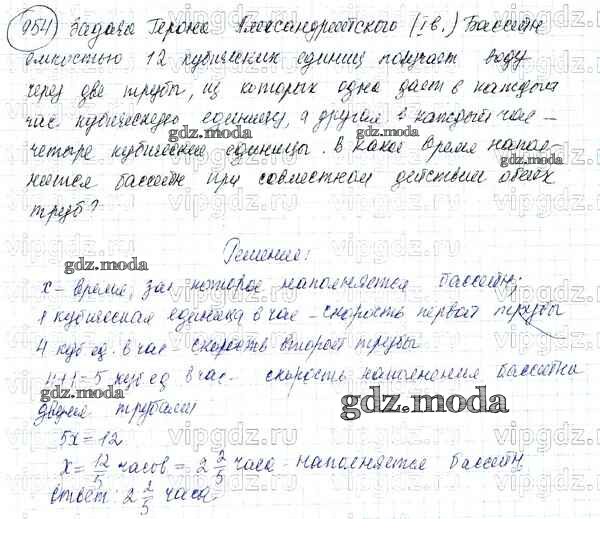 954) Задача Герона Александрийского (I в.) Бассейн
емкостью 12 кубических единиц получает воду
через две трубы, из которых одна дает в каждый
час кубическую единицу, а другая в каждый час –
gdz.moda gdz.moda
четыре кубические единицы. В какое время напол-
няется бассейн при совместном действии обеих
труб?
gdz.moda
Решение:
gdz.moda
x – время, за которое наполняется бассейн;
1 кубическая единица в час – скорость первой трубы
4 куб ед. в час – скорость второй трубы
4+1=5 куб ед в час – скорость наполнения бассейна
двумя трубами
gdz.moda
5x = 12
x = 12/5 часов = 2 2/5 часа – наполняется бассейн
ответ: 2 2/5 часа.
gdz.moda